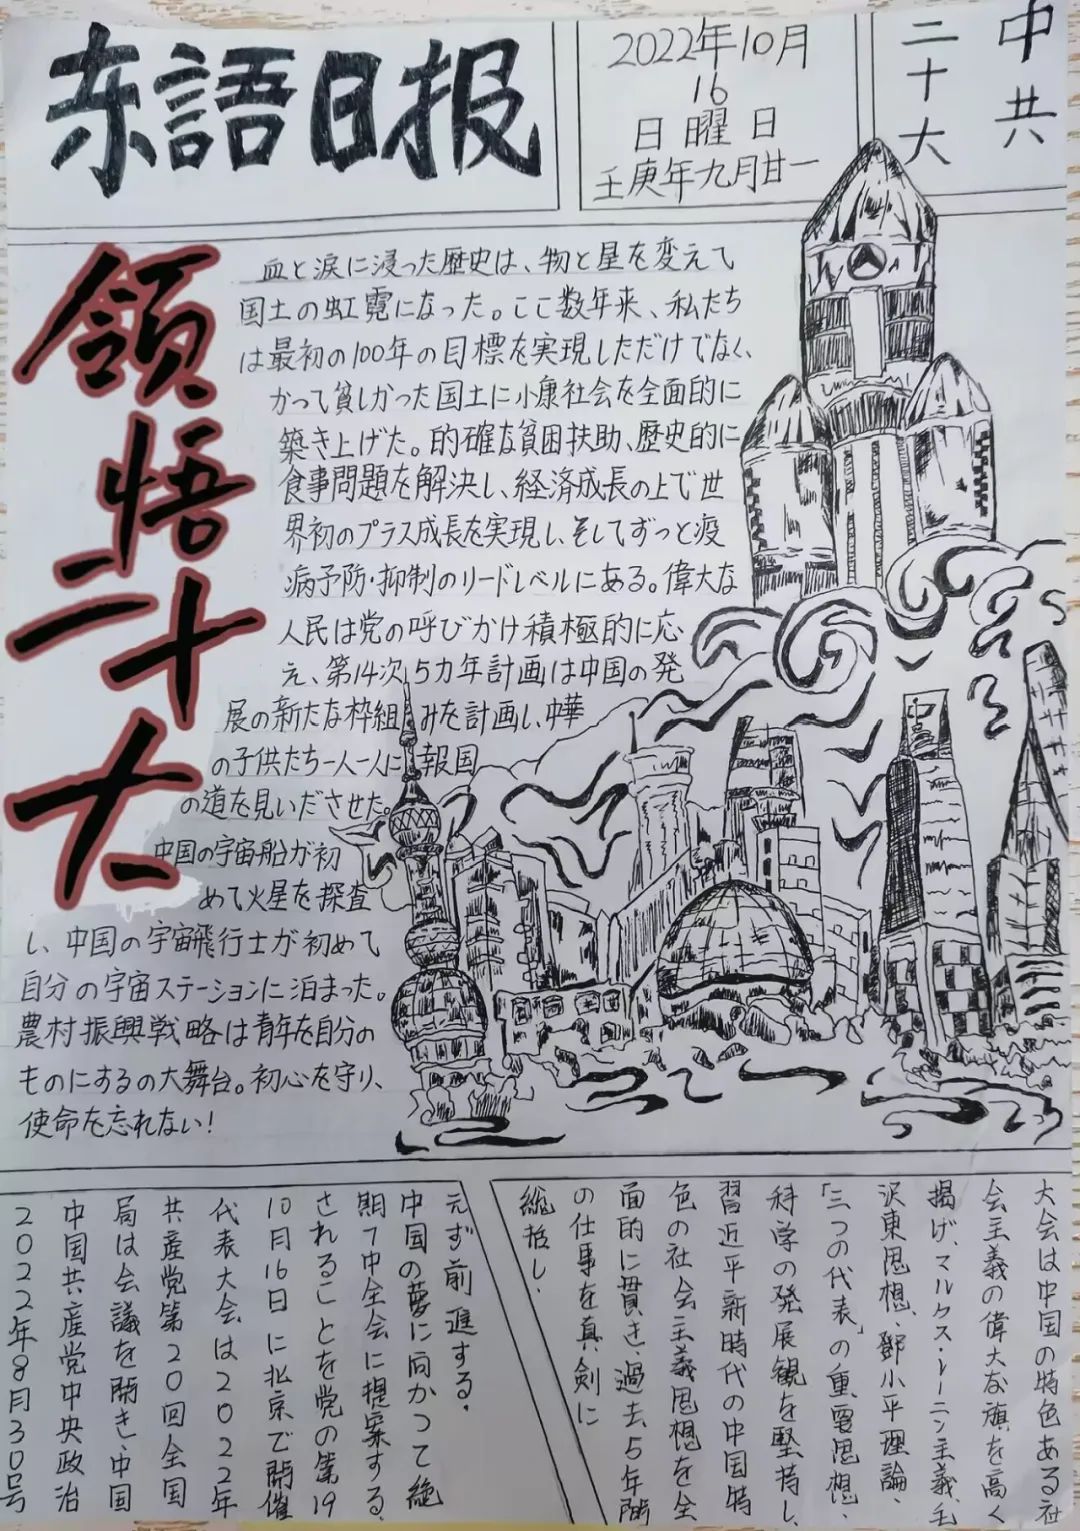 东語日报
2022年10月
16
日曜日
壬庚年九月廿一
中共
二十大
領悟二十大
血と涙に浸った歴史は、物と星を変えて
国土の虹霓になった。ここ数年来、私たち
は最初の100年の目標を実現しただけでなく、
かつて貧しかった国土に小康社会を全面的に
築き上げた。的確な貧困扶助、歴史的に
食事問題を解決し、経済成長の上で世
界初のプラス成長を実現し、そしてずっと疫
病予防・抑制のリードレベルにある。偉大な
人民は党の呼びかけ積極的に応
え、第14次5カ年計画は中国の発
展の新たな枠組みを計画し、中華
の子供たち一人一人に報国
の道を見いださせた。
中国の宇宙船が初
めて火星を探査
し、中国の宇宙飛行士が初めて
自分の宇宙ステーションに泊まった。
農村振興戦略は青年を自分の
ものにするの大舞台。初心を守り、
使命を忘れない！
大会は中国の特色ある社
会主義の偉大な旗を高く
掲げ、マルクス・レーニン主義、毛
沢東思想、鄧小平理論、
「三つの代表」の重要思想、
科学の発展観を堅持し、
習近平新時代の中国特
色の社会主義思想を全
面的に貫き、過去5年間
の仕事を真剣に
総括し、
元ず前進する。
中国の夢に向かって絶
期で中全会に提案する、
されることを党の第19
10月16日に北京で開催
代表大会は2022年
共産党第20回全国
局は会議を開き、中国
中国共産党中央政治
2022年8月30号